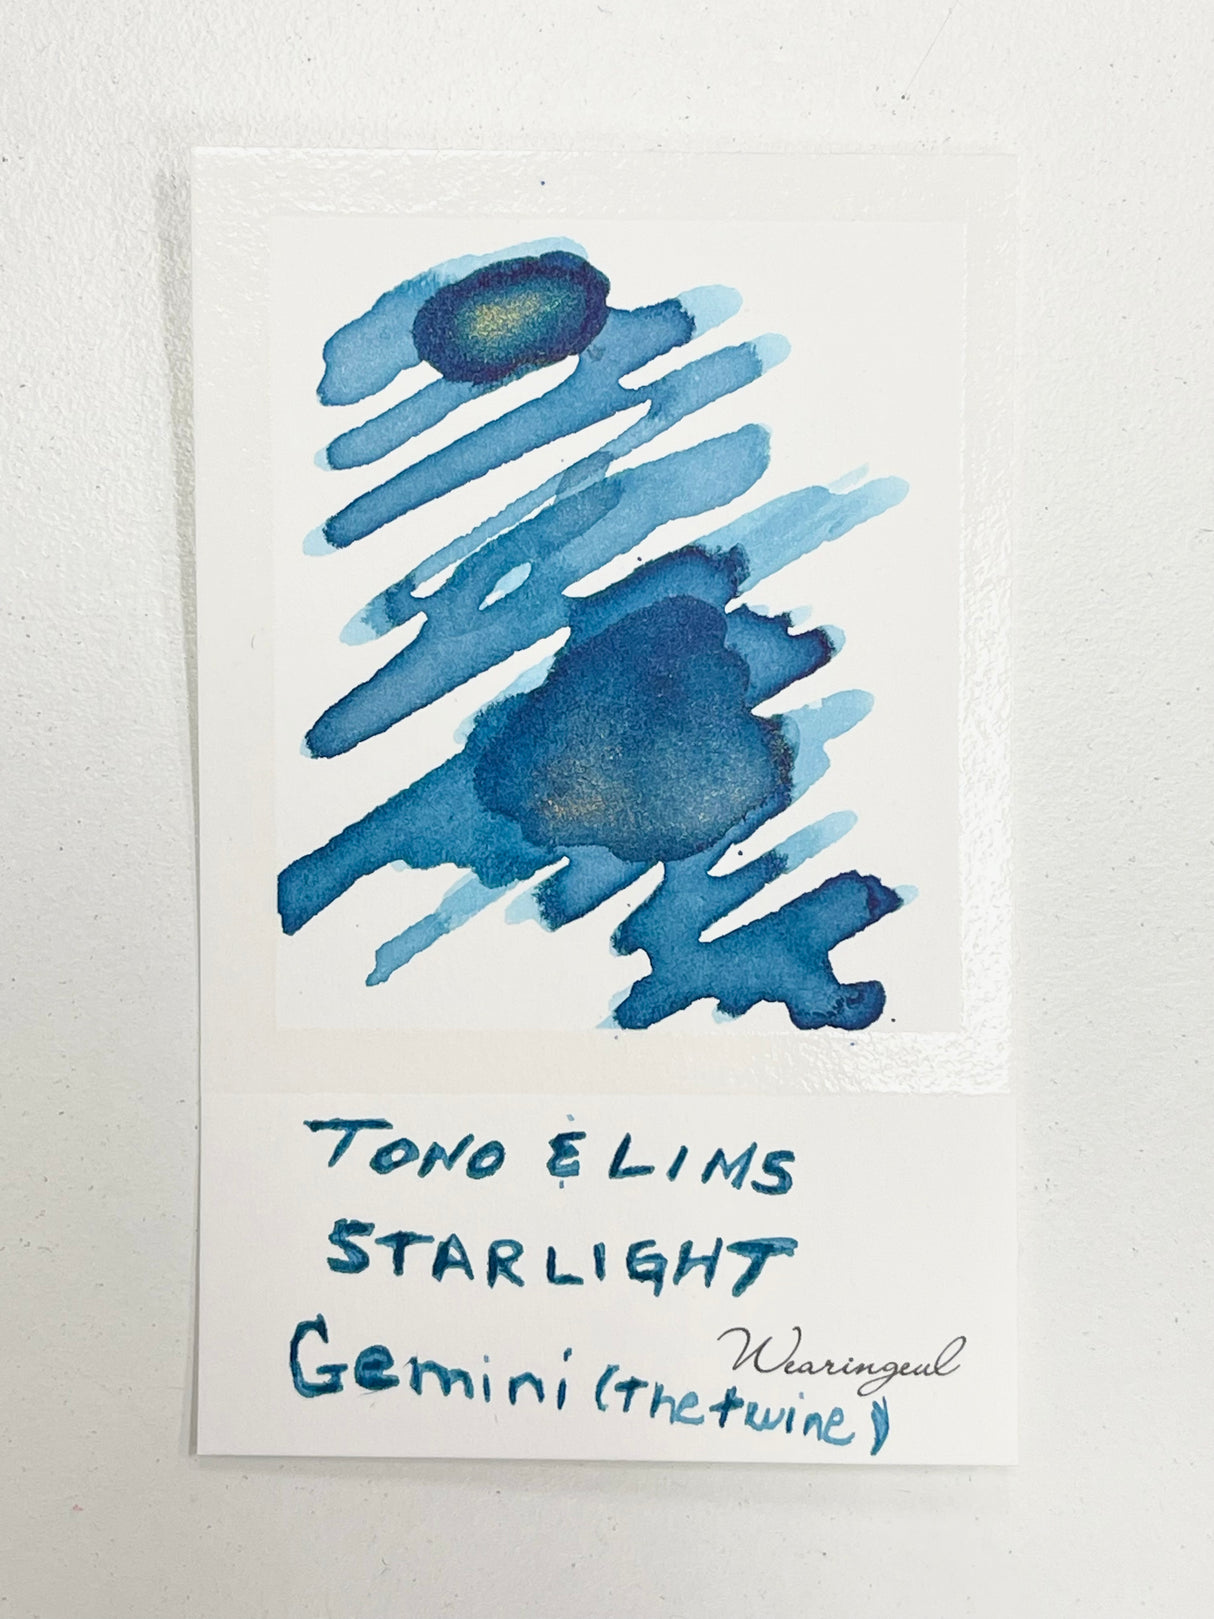 TONO & LIMS
STARLIGHT
Wearingeul
Gemini (The twine)